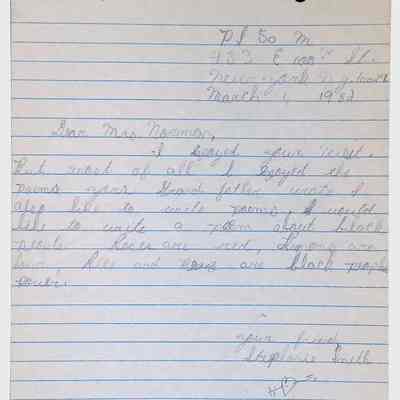 PS 50 M
433 E 100th St.
New York N.Y. 
March 1, 1982
Dear Mrs. Norman,
I Ejoyed your visit.
But most of all I Ejoyed the
poems your Grand father wrote I
also like to write poems I would
like to write a poem about black
people. Roses are red, are
and are black people
your friend,
Stephanie Smith